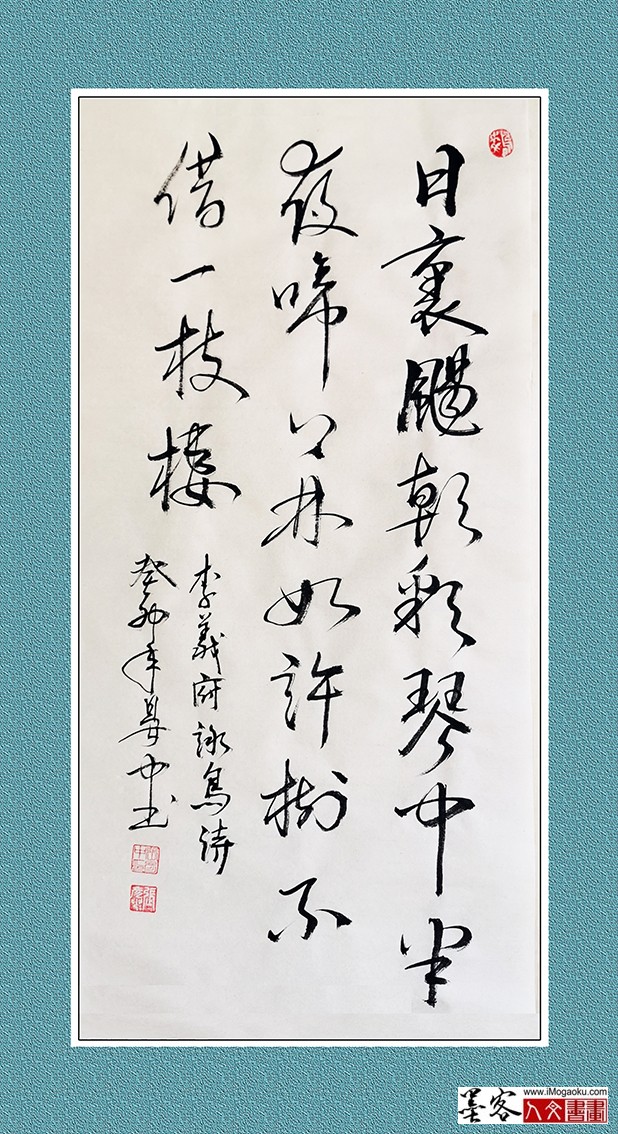 日裏颺朝彩琴中半
夜啼上林如許樹不
借一枝棲
李義府詠烏詩
癸卯年中书
www.iMogaoku.com
墨客
人文書畫